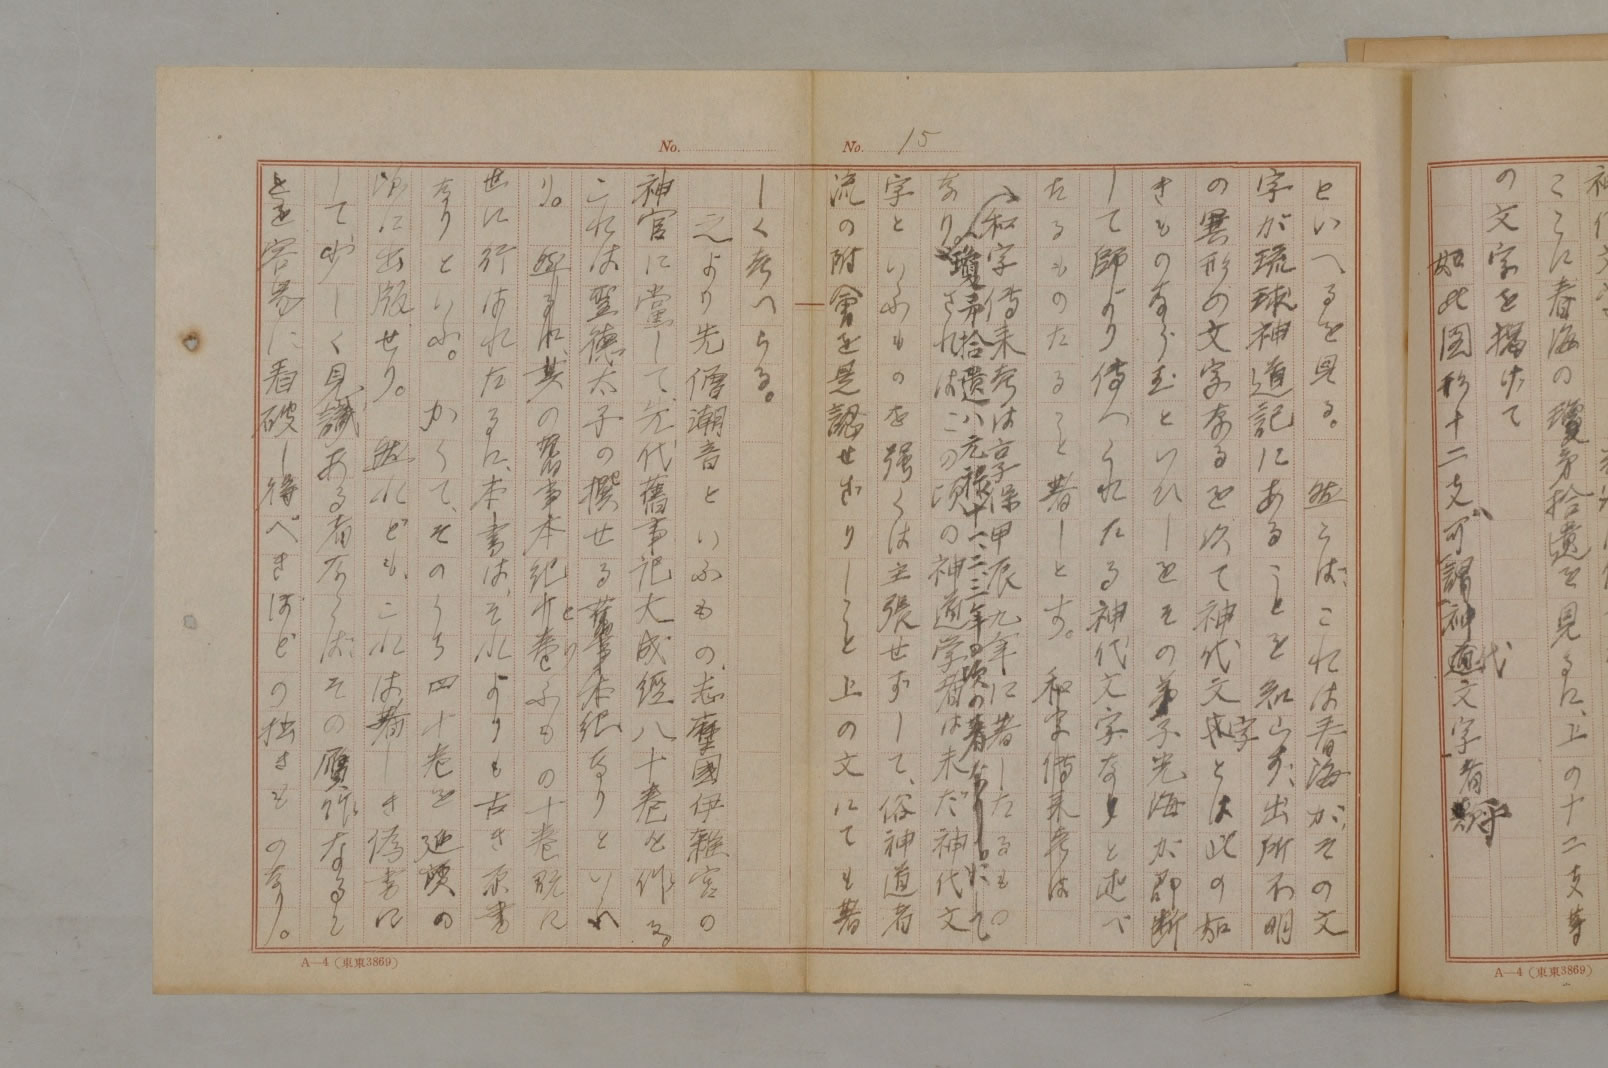 ここに春海の瓊矛拾遺を見るに、上の十二支等
の文字を掲げて
如此図形十二支、可謂神代文字者乎
No. 15
といへるを見る。然らば、これは春海が、その文
字が琉球神道記にあることを知らず、出所不明
の異形の文字なるを以て神代文字とは此の如
きものならむといひしをその弟子光海が即断
して師より伝へられたる神代文字なりと述べ
たるものたること著しとす。和字傳来考は
和字傳来考は享保甲辰九年に著したるもの
なり、瓊矛拾遺は元禄十一、二、三年頃の著なり。
されはこの頃の神道学者は未だ神代文
字といふものを強くは主張せずして、俗神道者
流の附會を是認せざりしこと上の文にても著
No.
しく考へらる。
之より先僧潮音といふもの、志摩國伊雜宮の
神官に黨して先代舊事記大成經八十巻を作る。
これは聖徳太子の撰せる舊事本紀なりといへ
り。然るに、其の舊事本紀といふもの十巻既に
世に行はれたるに、本書は、それよりも古き原書
なりといふ。かくて、そのうち四十巻を延宝の
頃に出版せり。然れども、これは著しき偽書に
して少しく見識ある者ならば、その贋作なるこ
とを容易に看破し得べきほどの拙きものなり。
A—4（東東3869）
A—4（東東3869）